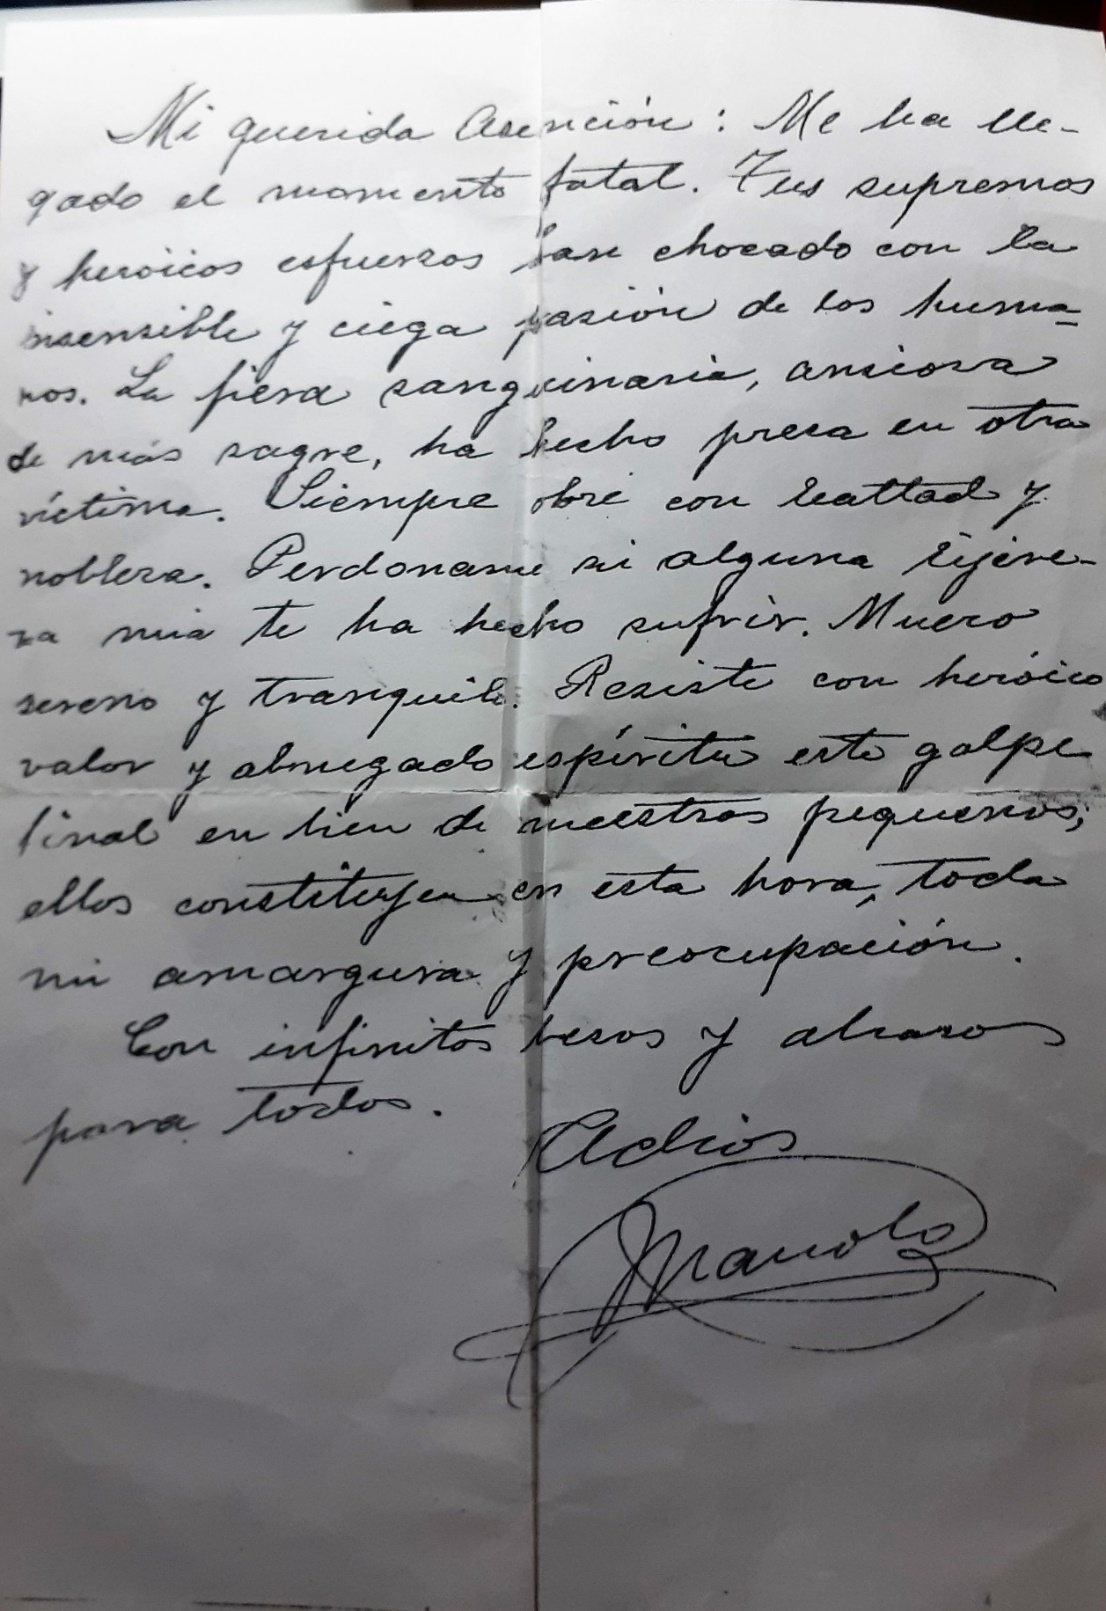 Mi querida Asención: Me ha lle-
gado el momento fatal. Tus supremos
y heroicos esfuerzos han chocado con la
insensible y ciega pasión de los huma-
nos. La fiera sanguinaria, ansiosa
de más sagre, ha hecho presa en otra
víctima. Siempre obré con lealtad y
nobleza. Perdoname si alguna lijere-
za mia te ha hecho sufrir. Muero
sereno y tranquilo. Resiste con heróico
valor y abnegado espíritu este golpe
final en bien de nuestros pequeños;
ellos constituyen en esta hora, toda
mi amargura y preocupación.
Con infinitos besos y abrazos
para todos.
Adios
Manolo